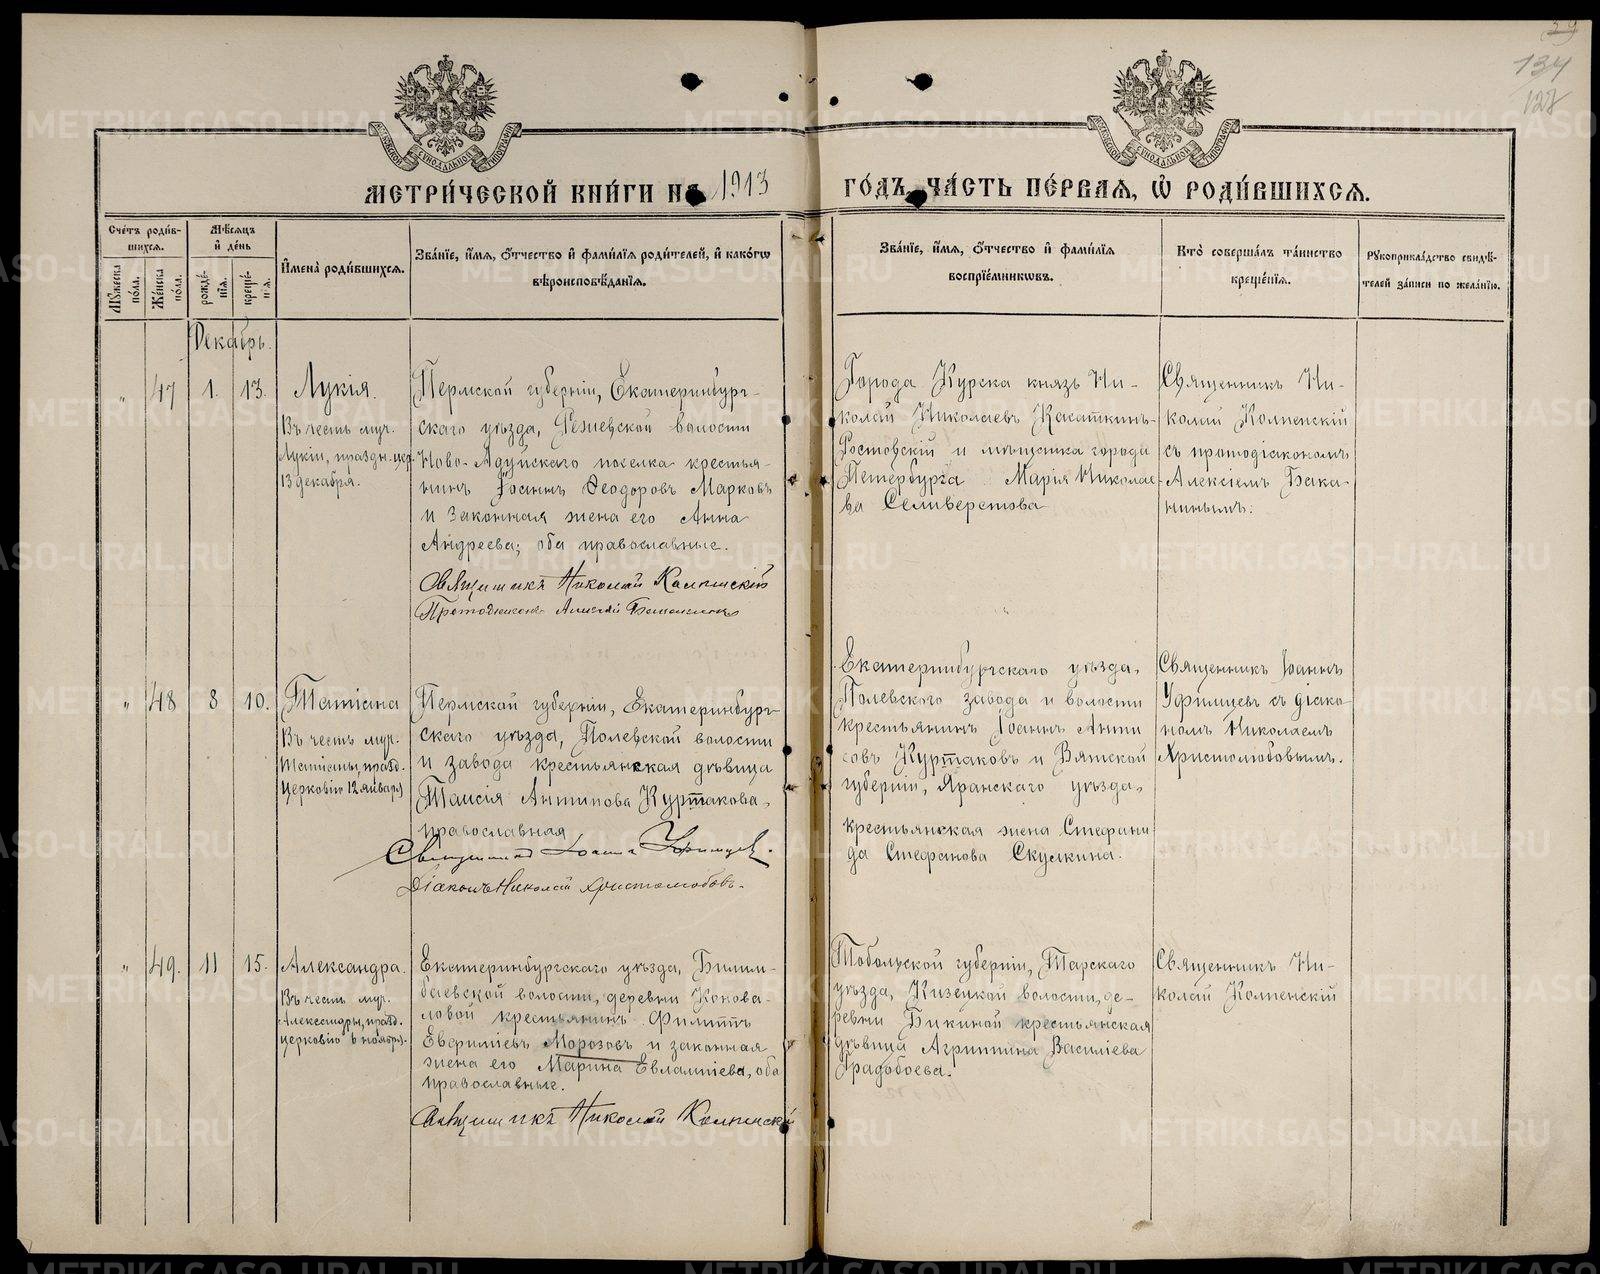 39
134
127
МЕТРИ́ЧЕСКОЙ КНИ́ГИ НА 1913
ГО́ДЪ, ЧА́СТЬ ПЕ́РВАЯ, Ѿ РОДИ́ВШИХСЯ.
Сче́тъ роди́в-
шихся.
Му́жеска по́ла.
Же́нска по́ла.
Мѣсяцъ и де́нь
рожде́-
нія.
креще́-
нія.
Имена̀ роди́вшихся.
Зва́ніе, и́мя, о́тчество и фами́лія роди́телей, и како́гѡ
вѣроисповѣ́данія.
Зва́ніе, и́мя, о́тчество и фами́лія
воспріе́мникѡвъ.
Кто̀ соверша́лъ та́инство
креще́нія.
Рукоприкла́дство свидѣ́-
телей за́писи по жела́нію.
Декабрь.
" 47 1. 13. Лукія.
Въ честь муч.
Лукіи, праздн. цер.
13 декабря.
Пермской губерніи, Екатеринбург-
скаго уѣзда, Режевской волости
Ново-Адуйскаго поселка крестья-
нинъ Іоаннъ Ѳеодоровъ Марковъ
и законная жена его Анна
Андреева; оба православные.
Священникъ Николай Колпенскій
Протодіаконъ Алексій Баканинъ
Города Курска князь Ни-
колай Николаевъ Касаткинъ-
Ростовскій и мѣщанка города
Петербурга Марія Николае-
ва Селиверстова
Священникъ Ни-
колай Колпенскій
съ протодіакономъ
Алексіемъ Бака-
нинымъ.
" 48 8 10. Татіана
Въ честь муч.
Татіаны, празд.
церковію 12 января
Пермской губерніи, Екатеринбург-
скаго уѣзда, Полевской волости
и завода крестьянская дѣвица
Таисія Антипова Куртакова,
православная
Священникъ Іоаннъ Уфимцевъ.
Діаконъ Николай Христолюбовъ.
Екатеринбургскаго уѣзда,
Полевского завода и волости
крестьянинъ Іоаннъ Анти
совъ Куртаковъ и Вятской
губерніи, Яранскаго уѣзда,
крестьянская жена Стефани
да Стефанова Скулкина.
Священникъ Іоаннъ
Уфимцевъ съ діако-
номъ Николаемъ
Христолюбовымъ.
" 49. 11 15. Александра.
Въ честь муч.
Александры, празд.
церковію 6 ноября.
Екатеринбургскаго уѣзда, Билим-
баевской волости, деревни Конова-
ловой крестьянинъ Филиппъ
Евфиміевъ Морозовъ и законная
жена его Марина Евлампіева, оба
православные.
Священникъ Николай Колпенскій
Тобольской губерніи, Тарскаго
уѣзда, Кизецкой волости, де-
ревни Бикиной крестьянская
дѣвица Агриппина Василіева
Градобоева.
Священникъ Ни-
колай Колпенскій
METRIKI.GASO-URAL.RU